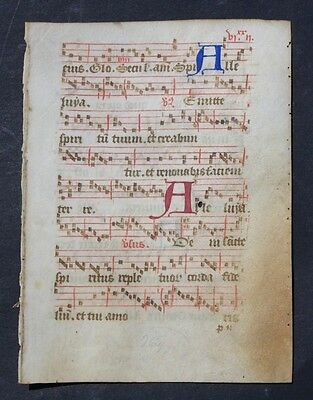 vi.xx ii.
eius. Glo. Secul. am. Spi Alle
luya. Emitte
spiri tū tuum. et creabun
tur. et renovabis faciem
ter re. Alle luya.
Veni sancte
spi ritus reple tuor corda fide
liū. et tui amo ris